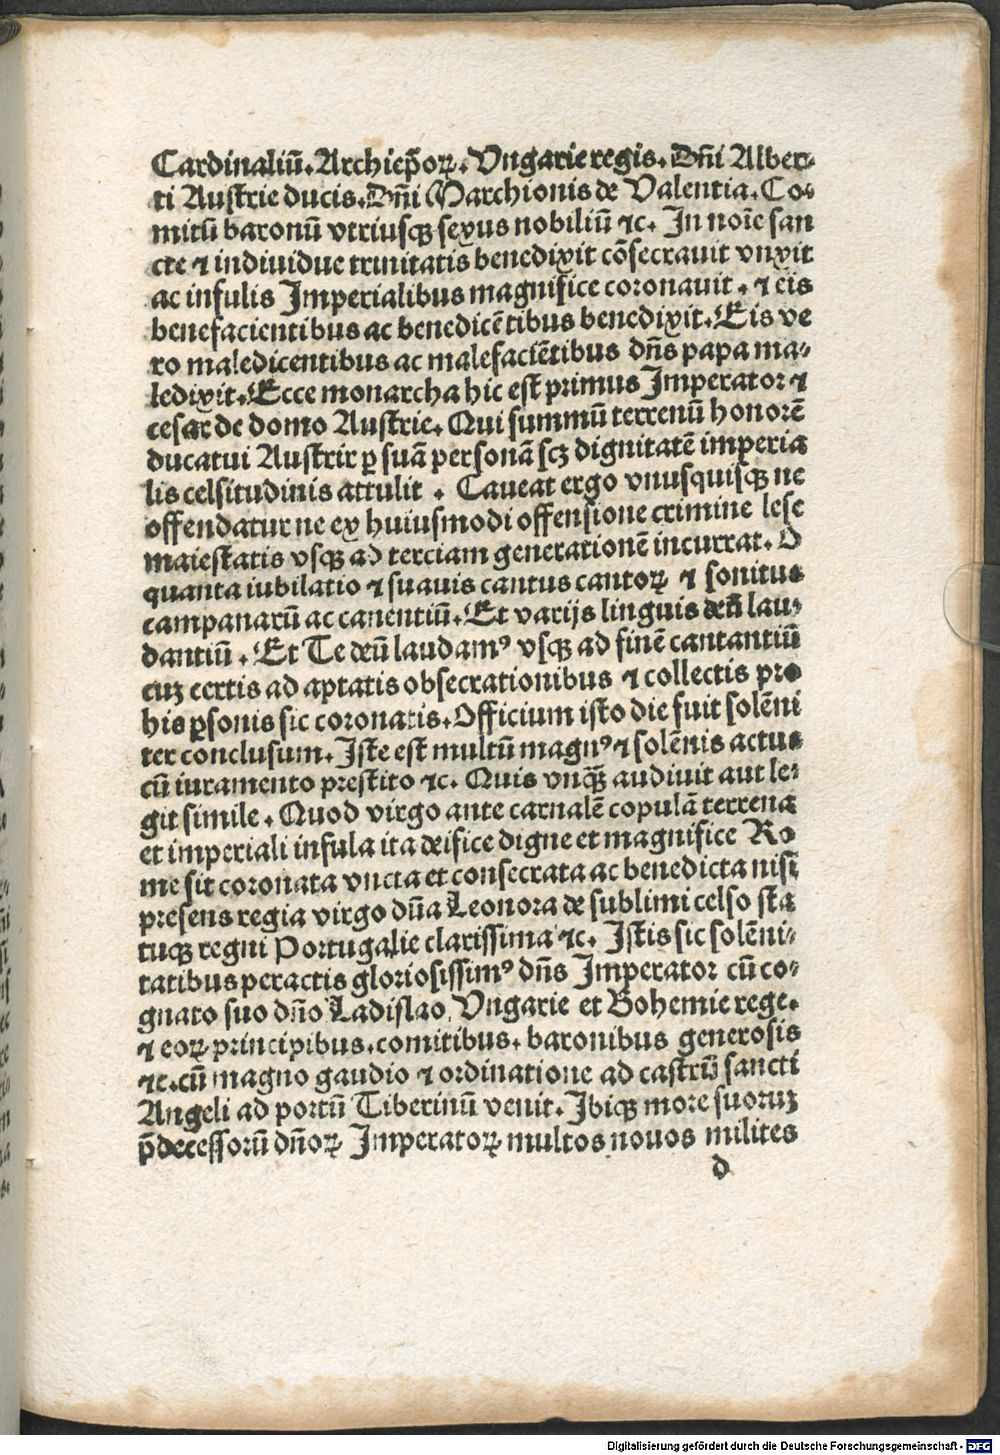 Cardinaliū. Archiep̄oꝝ. Ungarie regis. Dn̄i Alber⸗
ti Auſtrie ducis. Dn̄i Marchionis de Valentia. Co⸗
mitū baronū vtriuſqꝫ ſexus nobiliū ⁊c. In noīe ſan
cte ⁊ indiuidue trinitatis benedixit cōſecrauit vnxit
ac infulis Imperialibus magnifice coronauit. ⁊ eis
benefacientibus ac benedicētibus benedixit. Eis ve
ro maledicentibus ac malefaciētibus dn̄s papa ma⸗
ledixit. Ecce monarcha hic eſt primus Imperator ⁊
ceſar de domo Auſtrie. Qui ſummū terrenū honorē
ducatui Auſtrir ꝑ ſuā perſonā ſcꝫ dignitatē imperia
lis celſitudinis attulit. Caueat ergo vnuſquiſqꝫ ne
offendatur ne ex huiuſmodi offenſione crimine leſe
maieſtatis vſqꝫ ad terciam generationē incurrat. O
quanta iubilatio ⁊ ſuauis cantus cantoꝝ ⁊ ſonitus
campanarū ac canentiū. Et varijs linguis deū lau⸗
dantiū. Et Te deū laudamꝰ vſqꝫ ad finē cantantiū
cuꝫ certis ad aptatis obſecrationibus ⁊ collectis pro
his ꝑſonis ſic coronatis. Officium iſto die fuit ſolēni
ter concluſum. Iſte eſt multū magnꝰ ⁊ ſolēnis actus
cū iuramento preſtito ⁊c. Quis vnqꝫ̄ audiuit aut le⸗
git ſimile. Quod virgo ante carnalē copulā terrena
et imperiali infula ita deifice digne et magnifice Ro
me ſit coronata vncta et conſecrata ac benedicta niſi
preſens regia virgo dn̄a Leonora de ſublimi celſo ſta
tuqꝫ regni Portugalie clariſſima ⁊c. Iſtis ſic ſolēni⸗
tatibus peractis glorioſiſſimꝰ dn̄s Imperator cū co⸗
gnato ſuo dn̄o Ladiſlao Ungarie et Bohemie rege.
⁊ eoꝝ principibus. comitibus. baronibus generoſis
⁊c. cū magno gaudio ⁊ ordinatione ad caſtrū ſancti
Angeli ad portū Tiberinū venit. Ibiqꝫ more ſuoruꝫ
p̄deceſſorū dn̄oꝝ Imperatoꝝ multos nouos milites
d
Digitalisierung gefördert durch die Deutsche Forschungsgemeinschaft - DFG